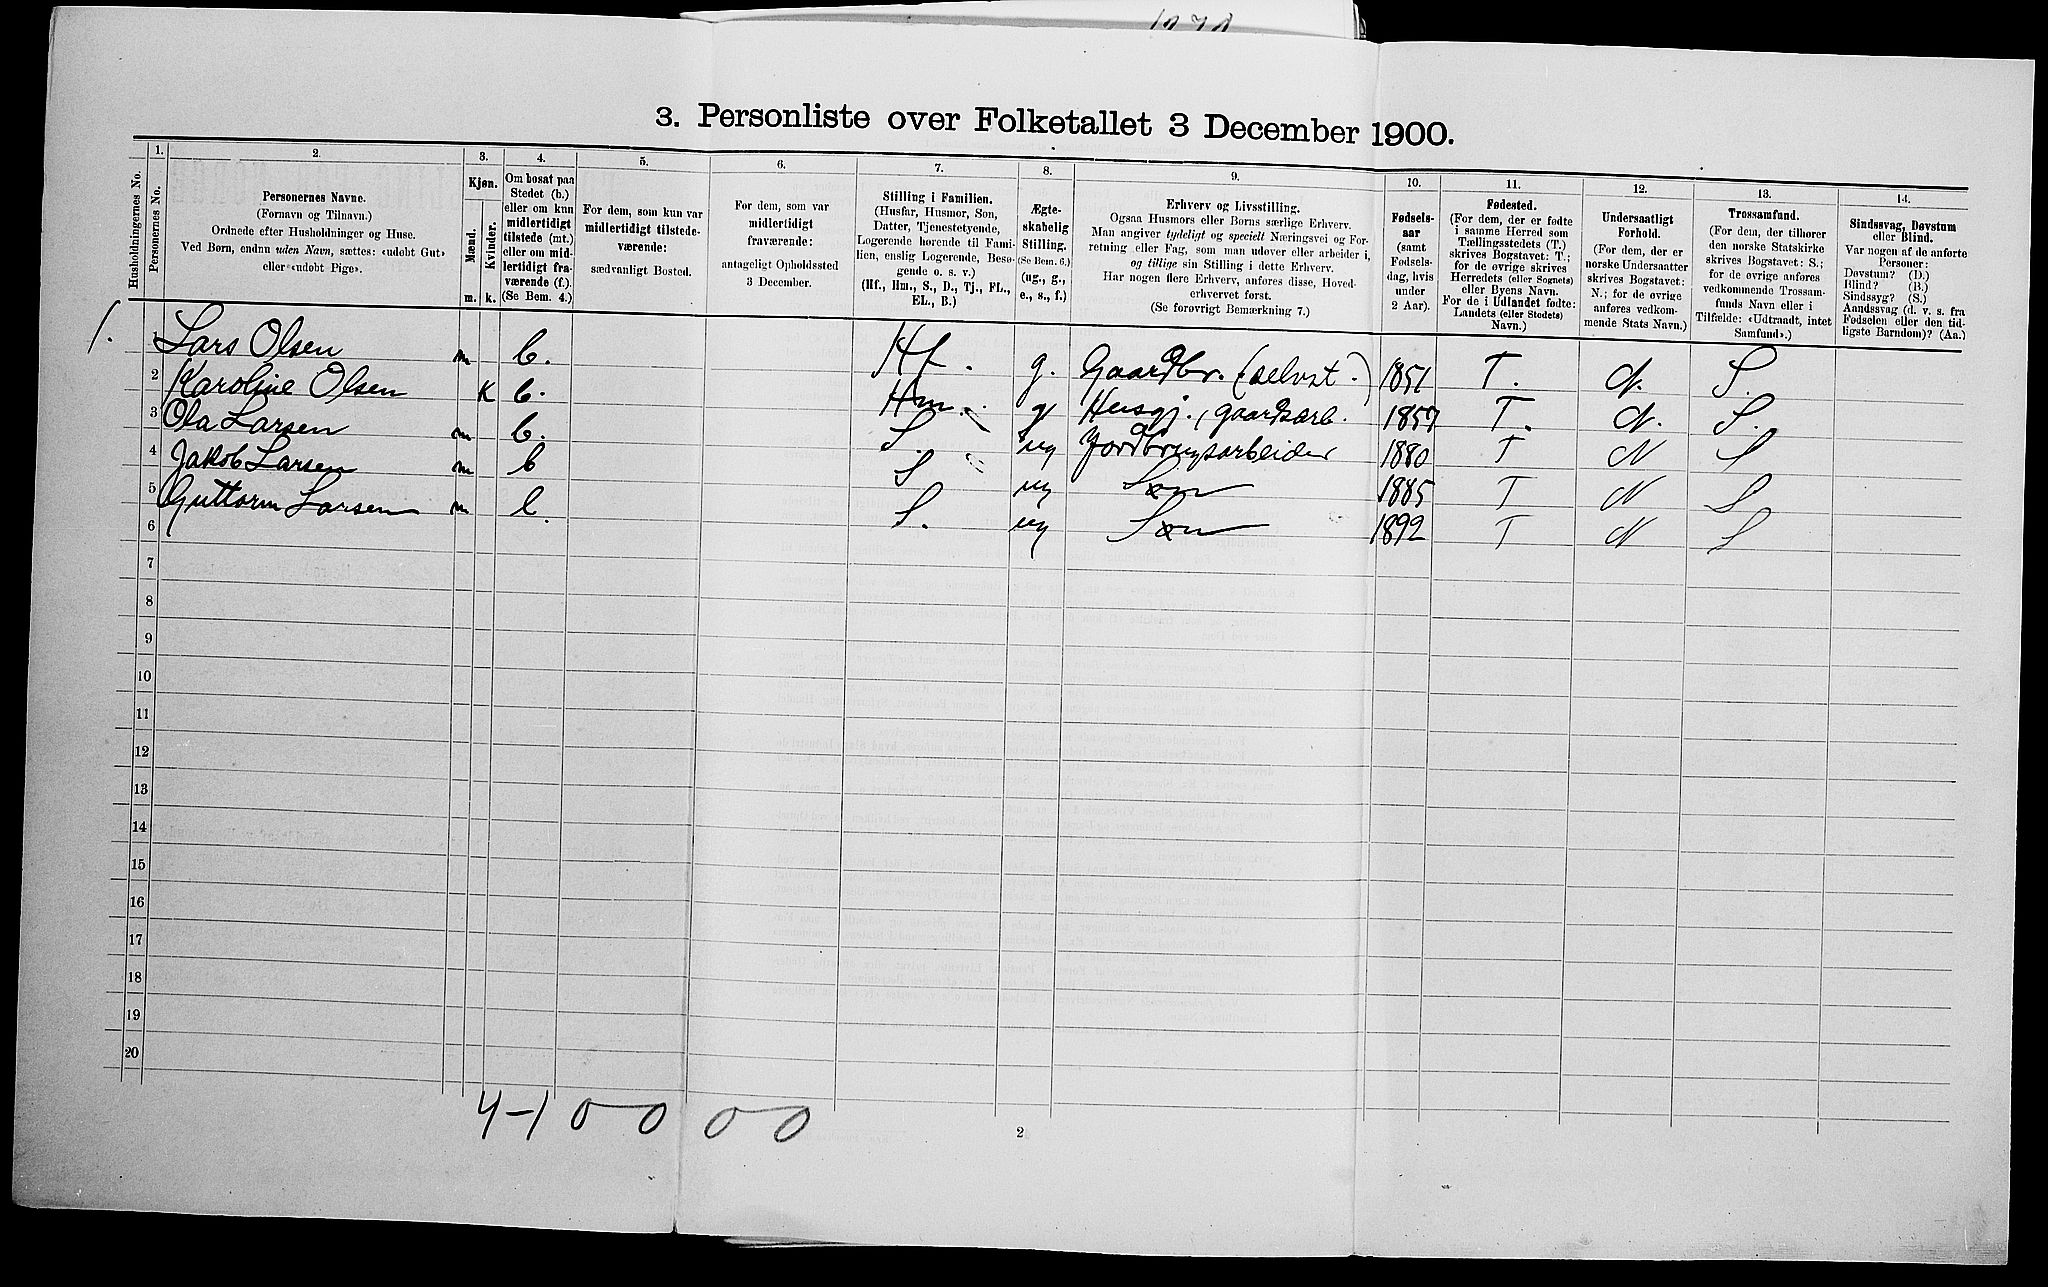 3. Personliste over Folketallet 3 December 1900.
Husholdningernes No.
1.
Personernes No.
2.
Personernes Navne.
(Fornavn og Tilnavn.)
Ordnede efter Husholdninger og Huse.
Ved Børn, endnu uden Navn, sættes: «udøbt Gut»
eller «udøbt Pige».
3.
Kjøn.
Mænd.
Kvinder.
m. k.
4.
Om bosat paa
Stedet (b.)
eller om kun
midlertidigt
tilstede (mt.)
eller om mid-
lertidigt fra-
værende (f.).
(Se Bem. 4.)
5.
For dem, som kun var
midlertidigt tilstede-
værende:
sædvanligt Bosted.
6.
For dem, som var
midlertidigt
fraværende:
antageligt Opholdssted
3 December.
7.
Stilling i Familien.
(Husfar, Husmor, Søn,
Datter, Tjenestetyende,
Logerende hørende til Fami-
lien, enslig Logerende, Besø-
gende o. s. v.)
(Hf., Hm., S., D., Tj., FL.,
EL., B.)
8.
Ægte-
skabelig
Stilling.
(Se Bem. 6.)
(ug., g.,
e., s., f.)
9.
Erhverv og Livsstilling.
Ogsaa Husmors eller Børns særlige Erhverv.
Man angiver tydeligt og specielt Næringsvei og For-
retning eller Fag, som man udøver eller arbeider i,
og tillige sin Stilling i dette Erhverv.
Har nogen flere Erhverv, anføres disse, Hoved-
erhvervet først.
(Se forøvrigt Bemærkning 7.)
10.
Fødsels-
aar
(samt
Fødsels-
dag, hvis
under
2 Aar).
11.
Fødested.
(For dem, der er fødte
i samme Herred som
Tællingsstedets (T.)
skrives Bogstavet: T.;
for de øvrige skrives
Herredets (eller Sognets)
eller Byens Navn.
For de i Udlandet fødte:
Landets (eller Stedets)
Navn.)
12.
Undersaatligt
Forhold.
(For dem, der er
norske Undersaatter
skrives Bogstavet:
N.; for de øvrige
anføres vedkom-
mende Stats Navn.)
13.
Trossamfund.
(For dem, der tilhører
den norske Statskirke
skrives Bogstavet: S.;
for de øvrige anføres
vedkommende Trossam-
funds Navn eller i
Tilfælde: «Udtraadt, intet
Samfund».)
14.
Sindssvag, Døvstum
eller Blind.
Var nogen af de anførte
Personer:
Døvstum? (D.)
Blind? (B.)
Sindssyg? (S.)
Aandssvag (d. v. s. fra
Fødselen eller den tid-
ligste Barndom)? (Aa.)
1. 1 Lars Olsen m b. Hf. g. Gaardbr. (selvst.) 1851 T. N. S.
2 Karoline Olsen K b. Hm. g Husgj., gaardsarb. 1857 T. N. S.
3 Ola Larsen m b. S. ug Jordbrugsarbeider 1880 T N S
4 Jakob Larsen m b S ug Søn 1885 T N S
5 Guttorm Larsen m b. S. ug Søn 1892 T N S
6
7
8
9
10
11
12
13
14
15
16
17
18
19
20
4-1 0 0 0 0
2